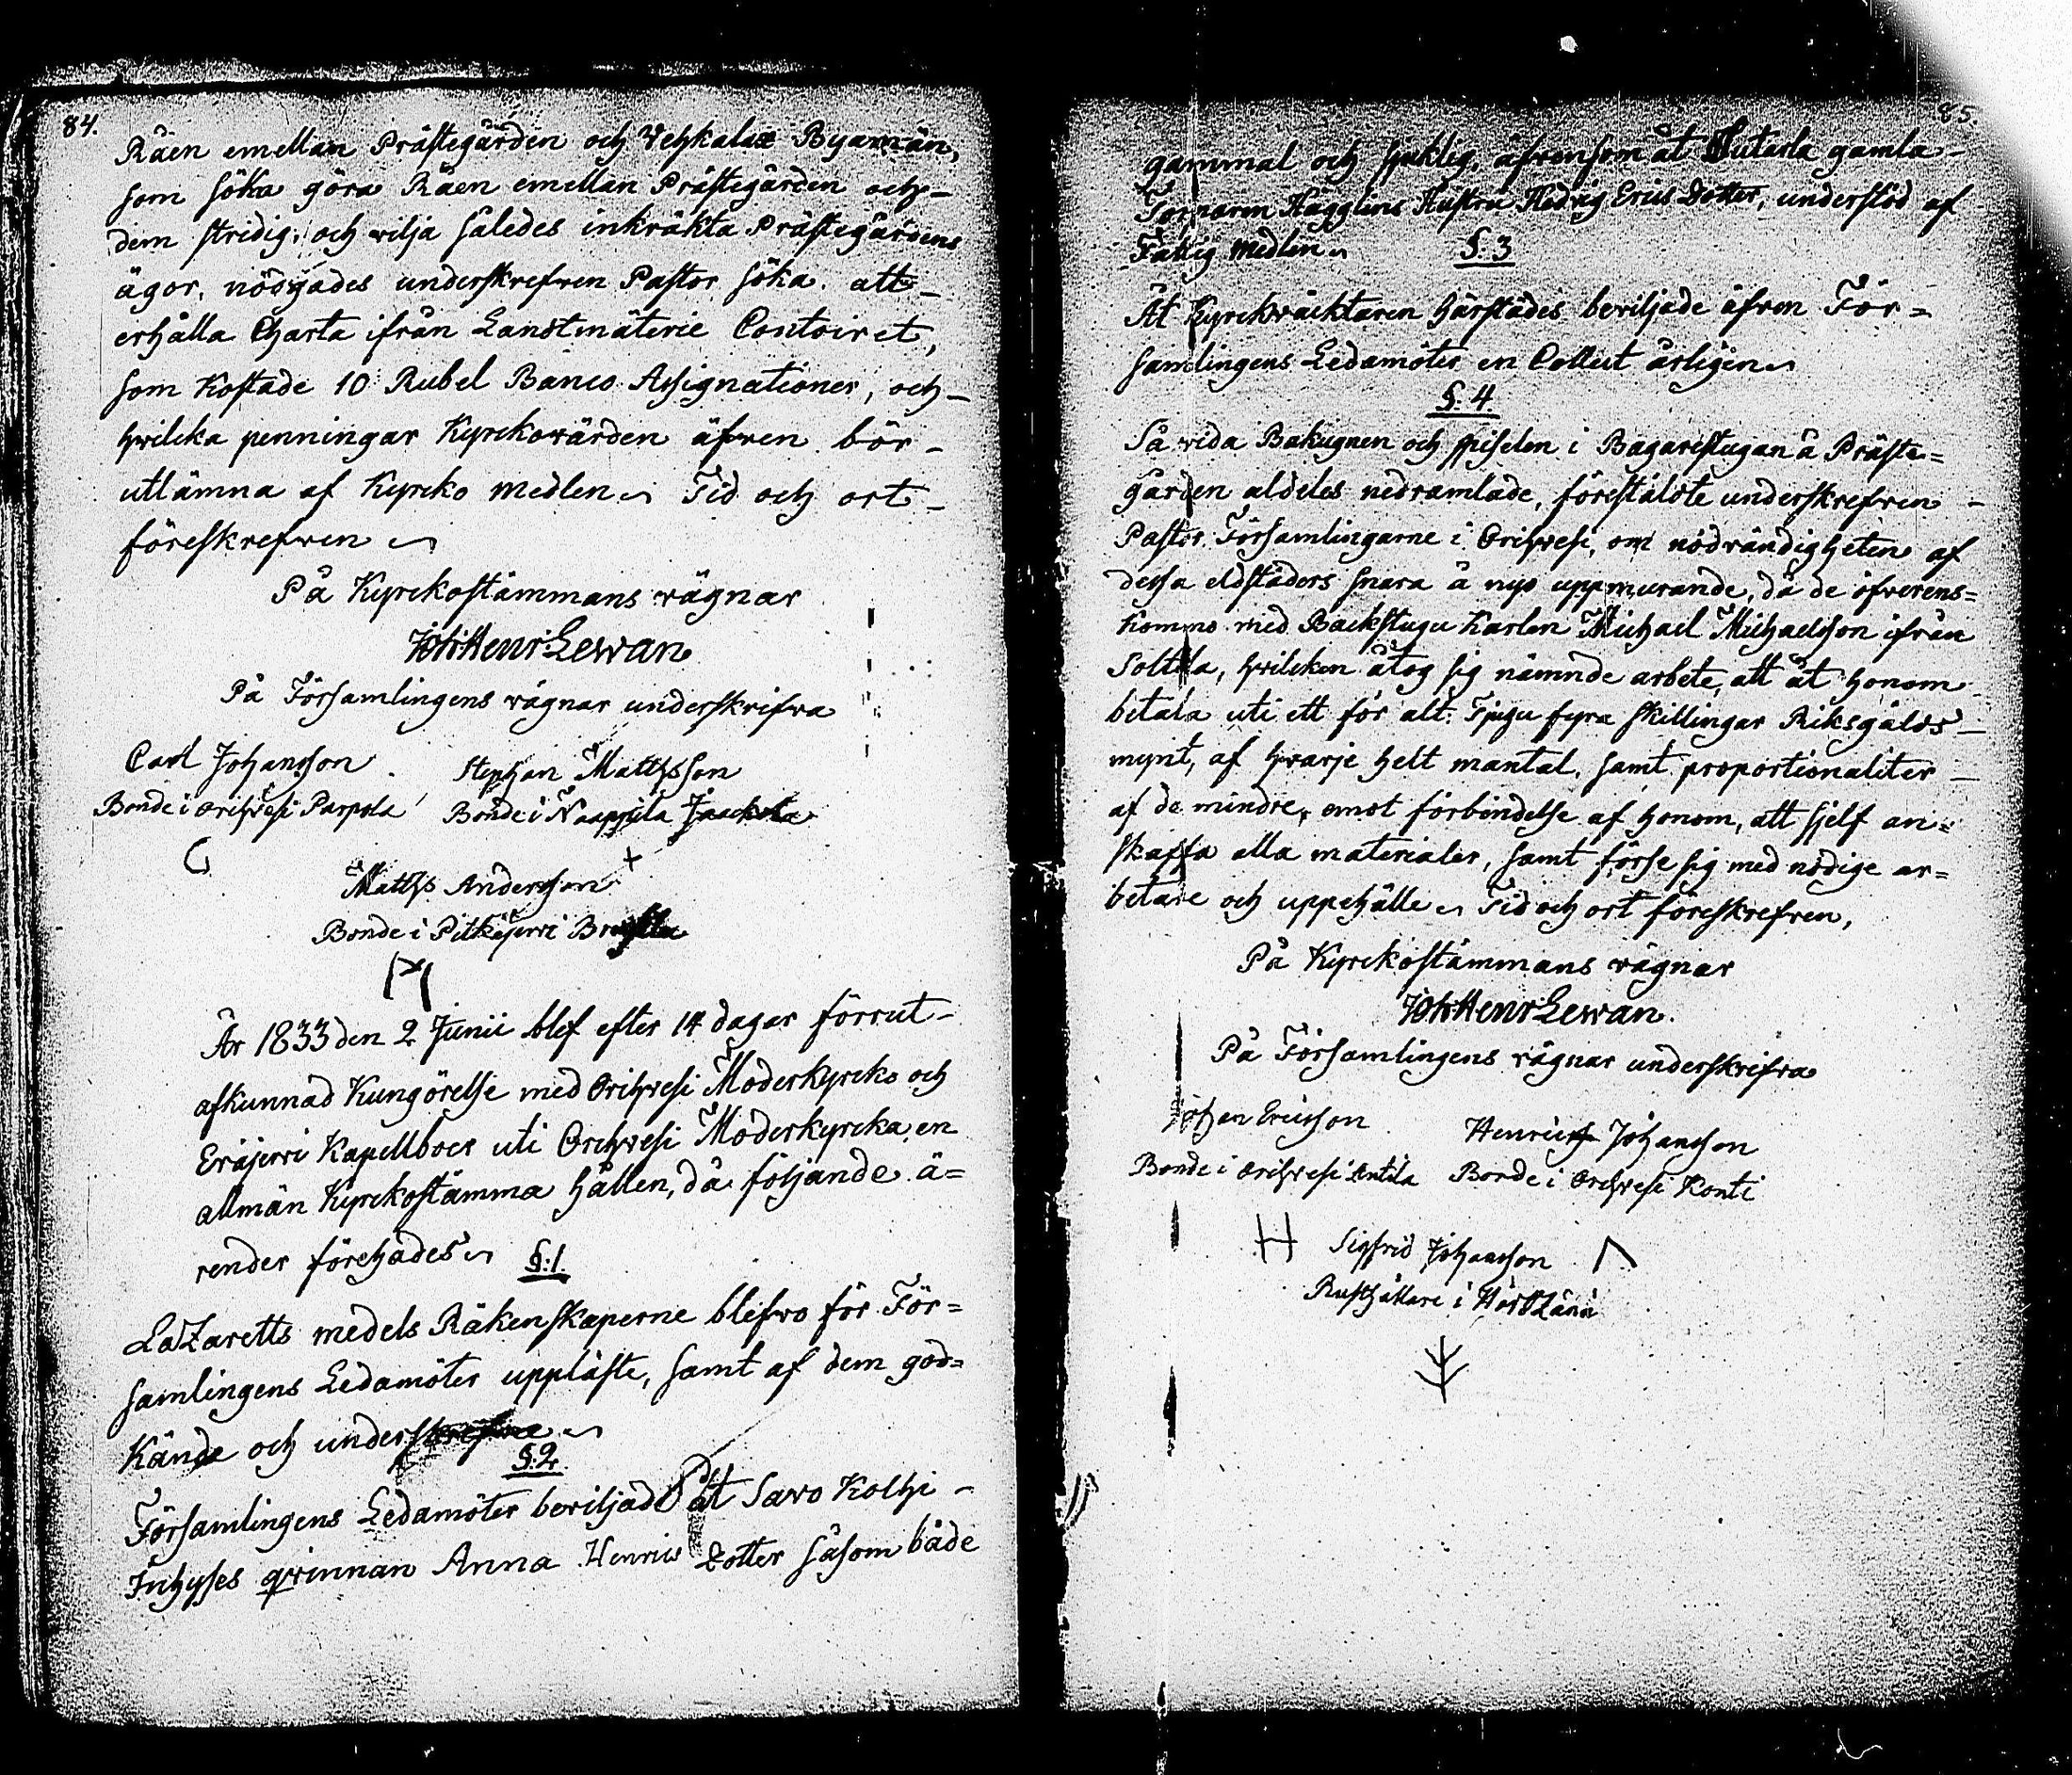 84.
Råen emellan Prästegården och Vehkalax Byamän,
som söka göra Råen emellan Prästegården och
dem stridig, och vilja således inkräkta Prästegårdens
ägor, nödgades underskrefven Pastor söka att
erhålla Charta ifrån Landtmäterie Contoiret,
som kostade 10 Rubel Banco Assignationer, och
hvilcka penningar Kyrckovärden äfven bör
utlämna af Kyrcko medlen. Tid och ort
föreskrefven
På Kyrckostämmans vägnar
Joh Henr Lewan
På Församlingens vägnar underskrifva
Carl Johansson Stephan Mattsson
Bonde i Orihvesi Parpola Bonde i Naappila Jaackola
Matts Andersson
Bonde i Pitkäjervi
År 1833 den 2 Junii blef efter 14 dagar förrut-
afkunnad Kungörelse med Orihvesi Moderkyrcko och
Eräjervi Kapellboer uti Orihvesi Moderkyrcka, en
allmän Kyrckostämma hållen, då följande ä=
render förehades
§. 1.
Lazaretts medels Räkenskaperne blefvo för För=
samlingens Ledamöter uppläste, samt af dem god=
kände och underskrefne
§. 2.
Församlingens Ledamöter beviljade åt Savo Kolhi
Inhyses qvinnan Anna Henrics Dotter såsom både
85.
gammal och sjuklig, äfvensom åt Jutarla gamla
Torparen Hägglins Hustru Hedvig Erics Dotter, understöd af
Fattig medlen
§. 3
Åt Kyrckväcktaren härstädes beviljade äfven För=
samlingens Ledamöter en Collect årligen
§. 4
Så vida Bakugnen och spiselen i Bagarestugan å Präste=
gården aldeles nedramlade, förestäldte underskrefven
Pastor Församlingarne i Orihvesi, om nödvändigheten af
dessa eldstäders snara å nyo uppmurande, då de öfverens=
kommo med Backstugu Karlen Michael Michaelsson ifrån
Soltila, hvilcken åtog sig nämnde arbete, att åt honom
betala uti ett för alt Tjugu fyra skillingar Riksgälds
mynt, af hvarje helt mantal, samt proportionaliter
af de mindre, emot förbindelse af honom, att sjelf an=
skaffa alla materialer, samt förse sig med nödige ar=
betare och uppehälle. Tid och ort föreskrefven,
På Kyrckostämmans vägnar
Joh Henr Lewan.
På Församlingens vägnar underskrifva
Johan Ericsson Henrich Johansson
Bonde i Orihvesi Antila Bonde i Orihvesi Konti
H Sigfrid Johansson
Rusthållare i